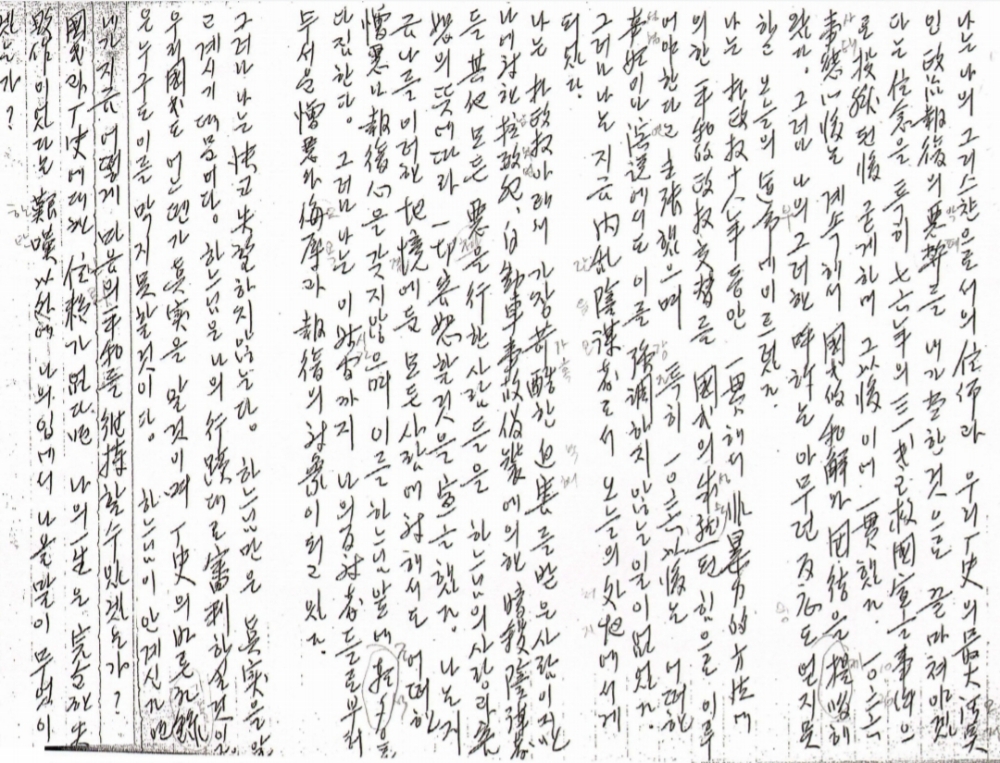 나는 나의 그리스찬으로서의 信仰과 우리 丆史의 最大汚点
인 政治報復의 惡弊를 내가 당한 것으로 끝마쳐야겠
다는 信念을 특히 七六年의 救國宣言事件으
로 投獄된後 굳게하며 그以後 이에 一貫했다. 一○·二六
事態以後는 계속해서 國民的和解와 団結을 提唱해
왔다. 그러나 나의 그러한 呼訴는 아무런 反応도 얻지못
한 오늘의 에 이르렀다.
나는 朴政权 十八年동안 一貫해서 非暴力的方法에
의한 平和的政权交替를 國民의 힘으로 이루
어야한다고 主張했으며 특히 一○·二六以後는 어떠한
이나 에서도 이를 強調하지 않는일이 없었다.
그러나 나는 지금 内乱陰謀者로서 오늘의 处地에서게
되었다.
나는 朴政权아래서 가장 苛酷한 迫害를 받은 사람이지만
나에对한 拉致犯, 自動車事故僞裝에의한 暗殺陰謀者
들 其他 모든 惡을 行한 사람들을 하느님의 사랑과 容
恕의 뜻에따라 一切容恕할것을 宣言했다. 나는 지
금 나를 이러한 地境에 둔 모든 사람에 对해서도 어떠한
憎惡나 報復心을 갖지않으며 이를 하느님앞에
다짐한다. 그러나 나는 이時刻까지 나의 反对者들로부터
무서운 憎惡와 侮辱과 報復의 对象이 되고 있다.
그러나 나는 失望하지않는다. 하느님만은 眞實을 알
고계시기 때문이다. 하느님은 나의 行蹟대로 審判하실것이다
우리國民도 언젠가 眞實을 알것이며 丆史의 바른記錄
은 누구도 이를 막지못할것이다. 하느님이 안계신다면
내가 지금 어떻게 마음의 平和를 維持할수 있겠는가?
國民과 丆史에대한 信賴가 없다면 나의一生은 完全한 失
敗作이었다는 以外에 나의 입에서 나올말이 무엇이
겠는가?